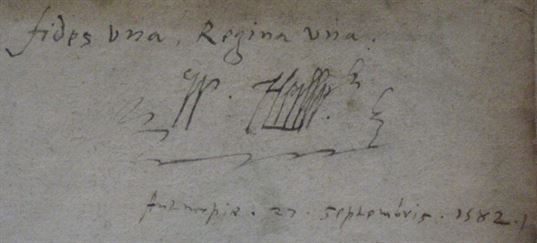 fides vna, Regina vna.
W.
Antuerpiæ. 27. septembris. 1582.